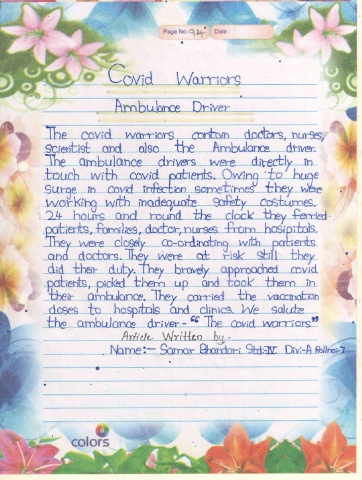 Page No. 94 Date:
Covid Warriors
Ambulance Driver
The covid warriors contain doctors, nurses,
scientist and also the Ambulance driver.
The ambulance drivers were directly in
touch with covid patients. Owing to huge
surge in covid infection sometimes they were
working with inadequate safety costumes.
24 hours and round the clock they ferried
patients, families, doctor, nurses from hospitals.
They were closely co-ordinating with patients
and doctors. They were at risk still they
did their duty. They bravely approached covid
patients, picked them up and took them in
their ambulance. They carried the vaccination
doses to hospitals and clinics. We salute
the ambulance driver-"The covid warriors"
Article Written by-
Name:- Samar Bhandari Std:-IV Div:-A Rollno:-7
colors